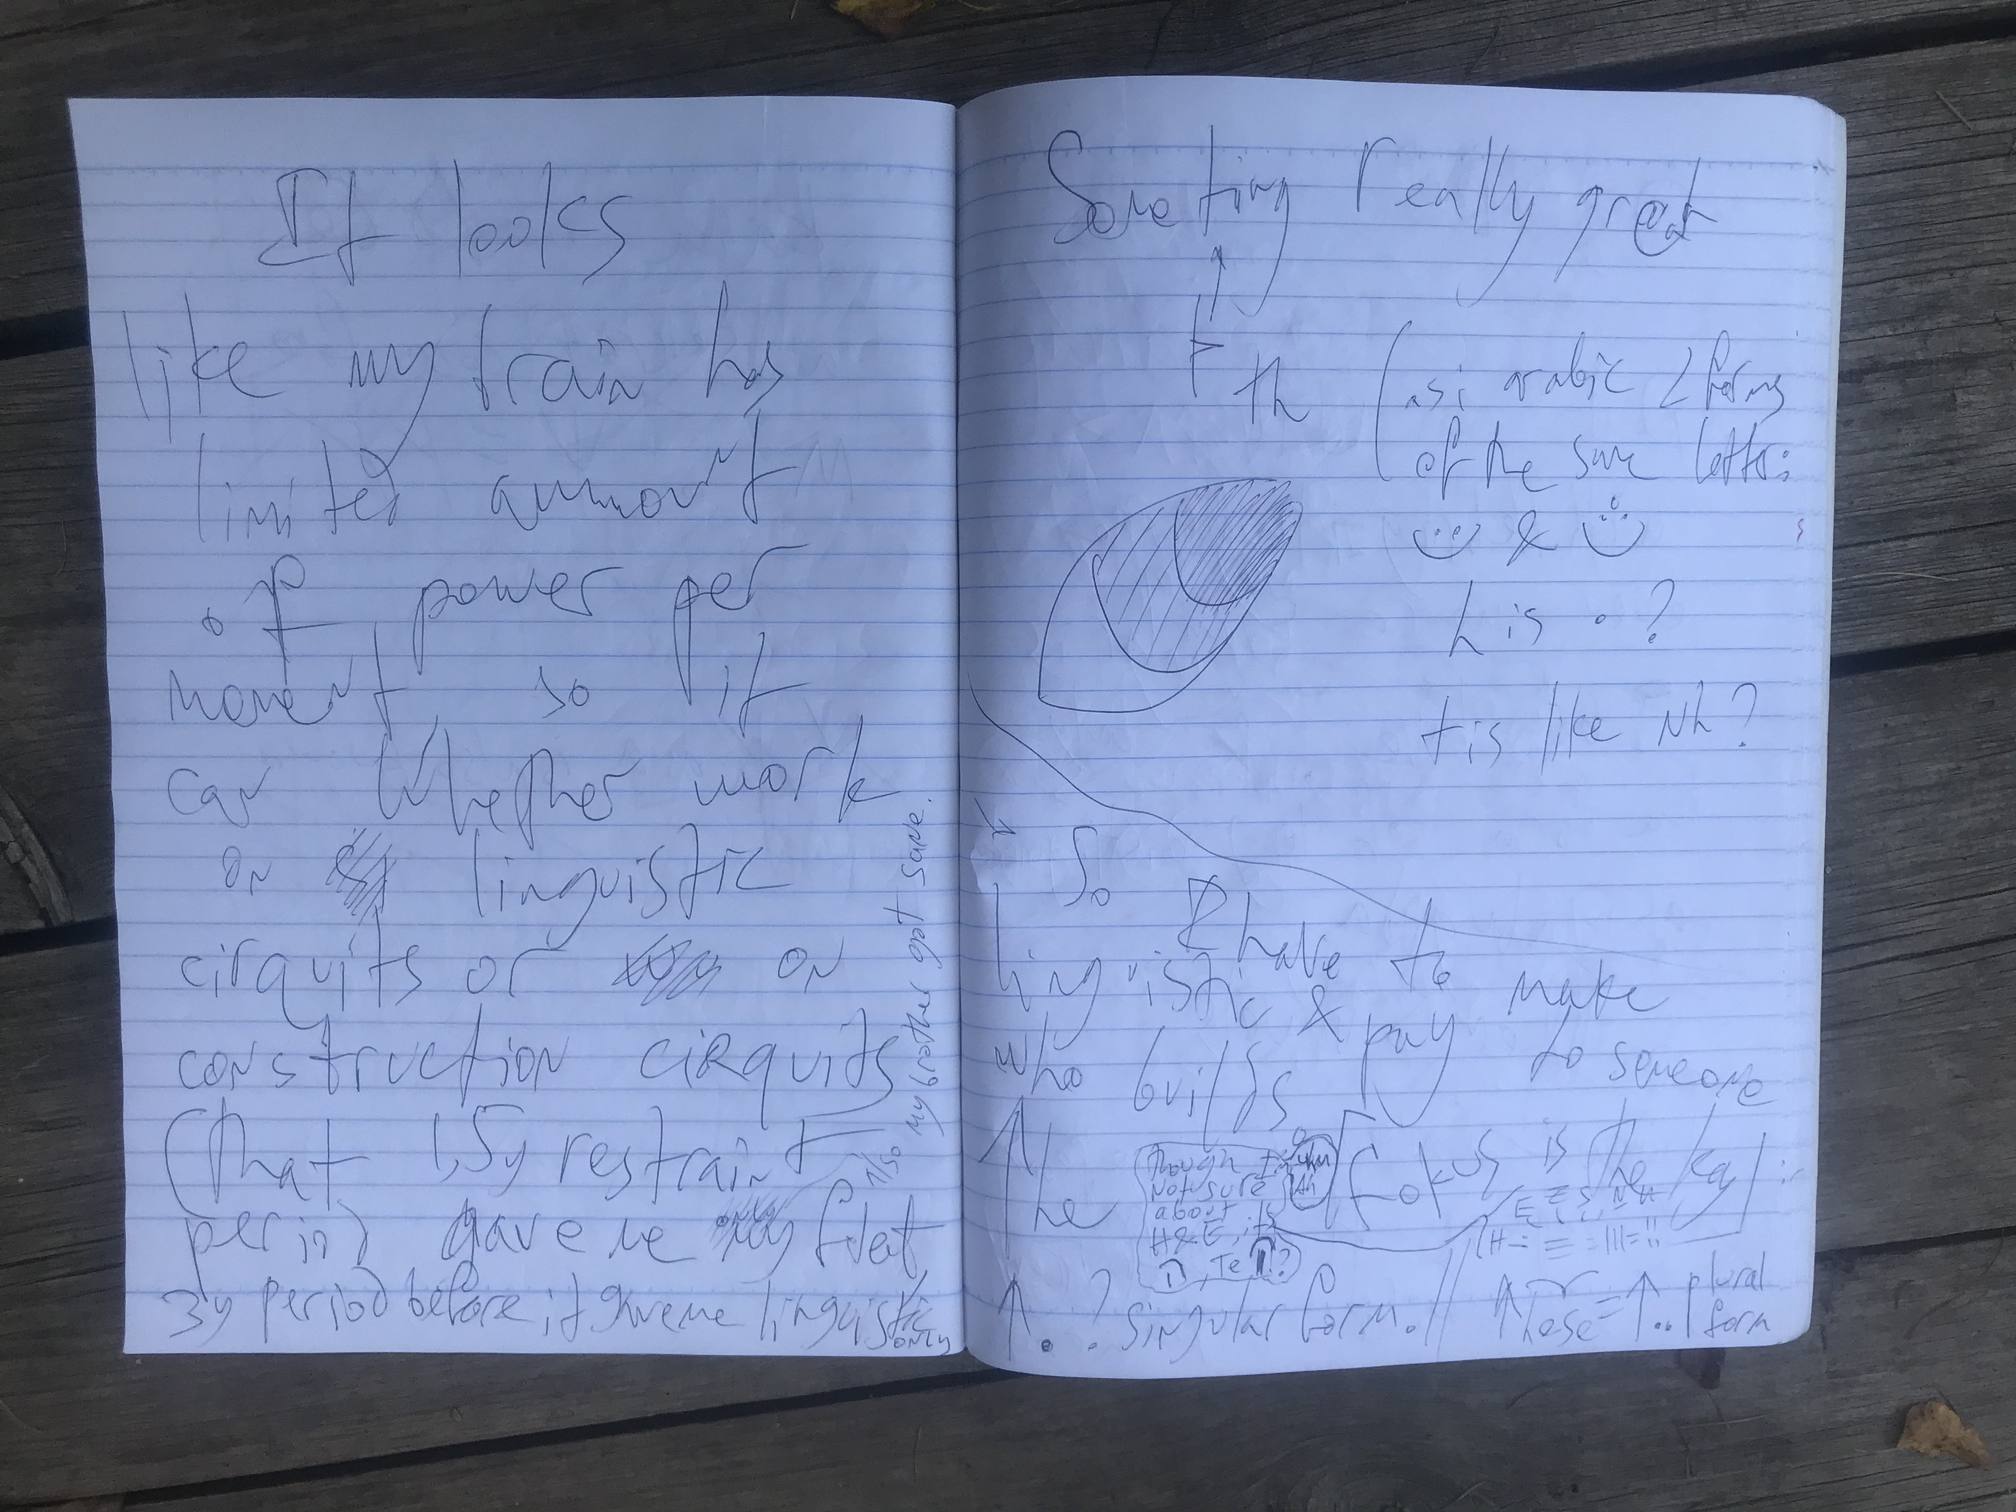 It looks
like my train has
limited ammount
of power per
moment so it
can whether work
on linguistic
cirquits or on
construction cirquits
(that 1,5y restraint
period gave me
3y period before it gave me linguistic
only
also my brother got same.
Someting really great
th
(as i arabic 2 forms
of the same letter:
&
h is · ?
t is like Nh?
So
I have to make
linguistic & pay to someone
who builds
The
fokus is the key
though
not sure
about
H&E, its
? singular form. //
These = ↑.. plural
form